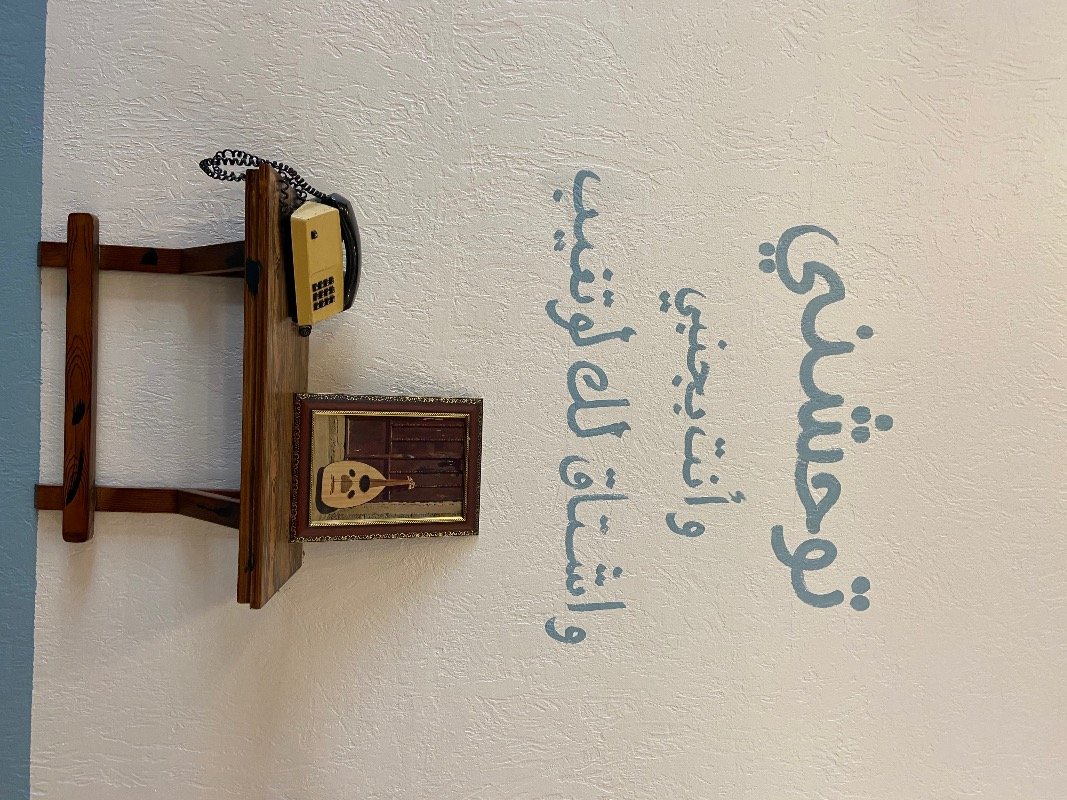 توحشني
و أنت بجنبي
و اشتاق لك لو تغيب